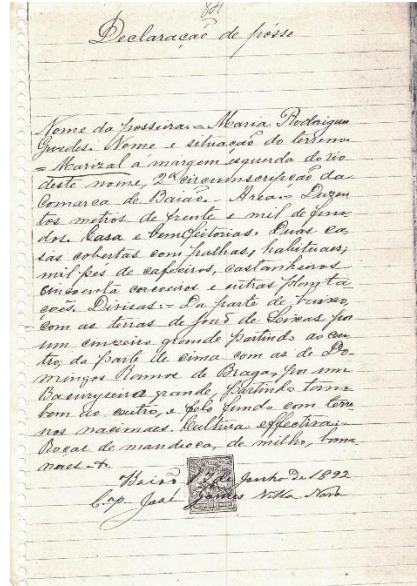 Declaração de pósse
Nome da posseira = Maria Rodrigues
Guedes. Nome e situação do terreno
= Marizal á margem esquerda do rio
deste nome, 2ª circumscripção da
Comarca de Baião. - Area - Duzen
tos metros de frente e mil de fun
dos. Casa e bemfeitorias. Duas ca
sas cobertas com palhas, habituaes;
mil pés de cafeeiros, castanheiros
cincoenta cacoeiros e outras planta
coẽs. Divisas:- Da parte de baixo,
com as terras de João de Seixas por
um cruzeiro grande partindo ao cen
tro, da parte de cima com as de Do
mingos Ramos de Braga, por um
grande, partindo tam
bem ao centro, e pelo fundo com terre
nos nacionaes. Cultura effectiva:
Roças de mandioca, de milho, bana
naes &.
Baião 17 de Junho de 1892
Cap. José Gomes Villa Nova